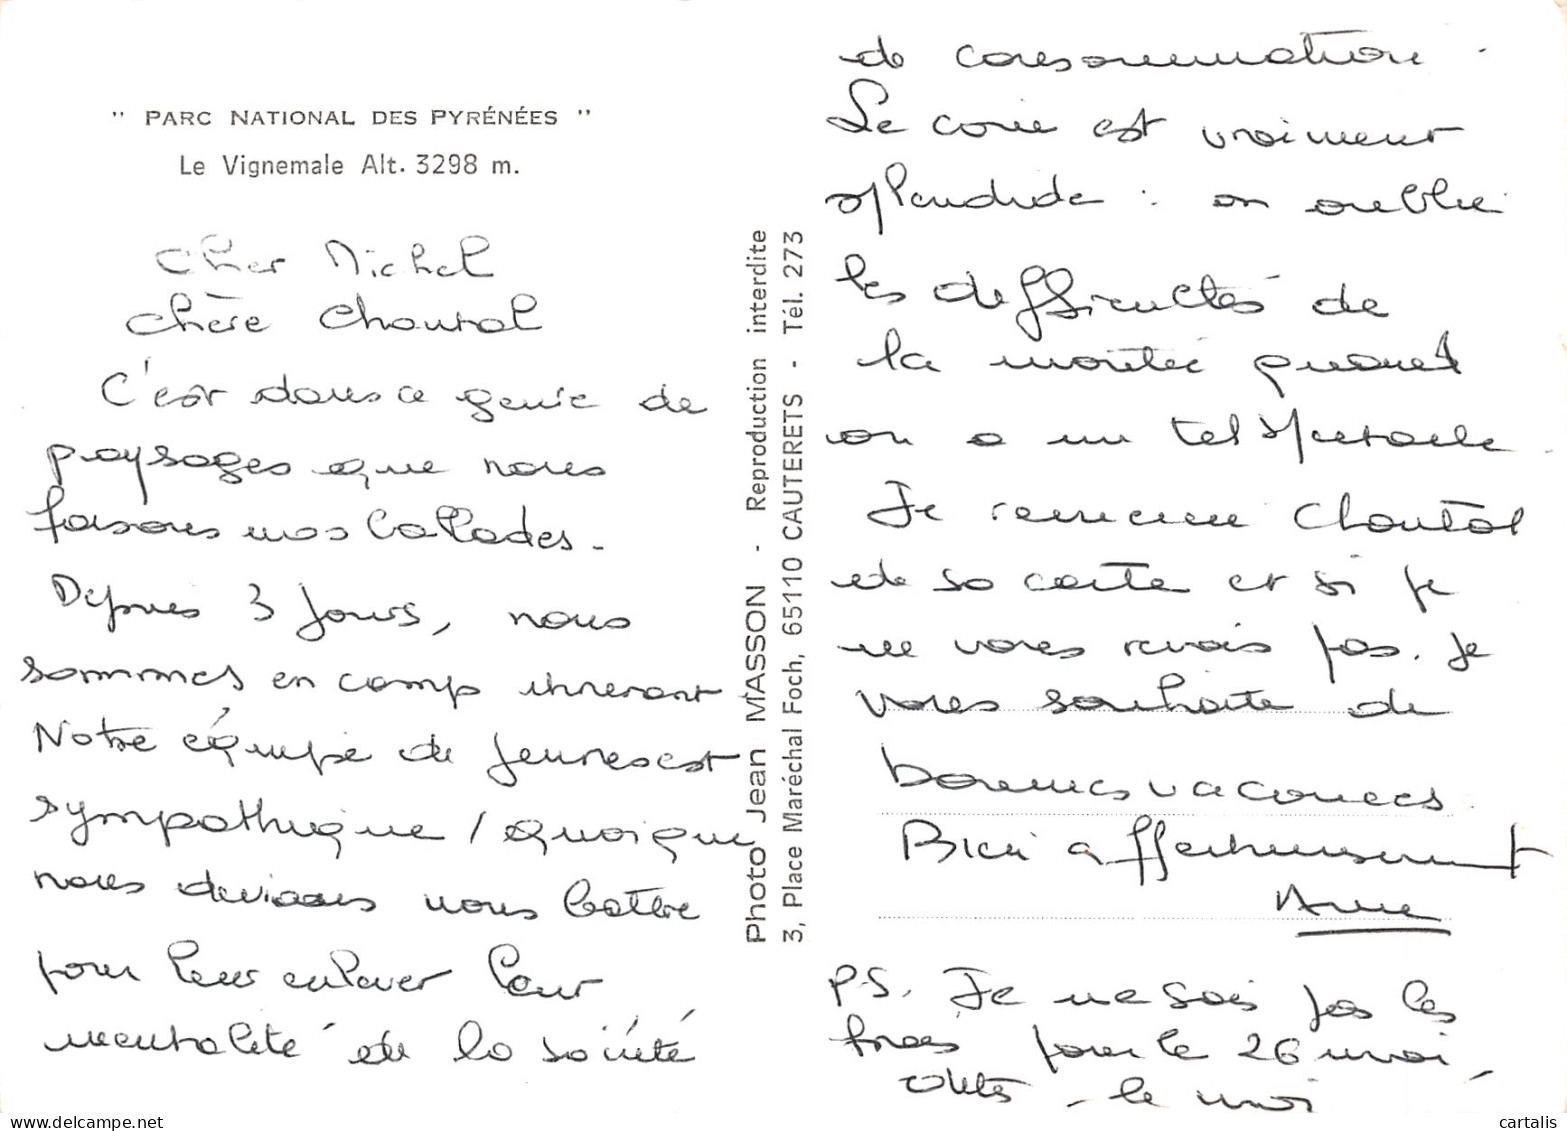 " PARC NATIONAL DES PYRÉNÉES "
Le Vignemale Alt. 3298 m.
Cher Michel
Chère Chantal
C'est dans ce genre de
paysages que nous
faisons nos ballades.
Depuis 3 jours, nous
sommes en camp itinérant
Notre équipe de jeunes est
sympathique / quoique
nous devions nous battre
pour leur enlever leur
mentalité de la société
de consommation.
Le coin est vraiment
splendide : on oublie
les difficultés de
la montée quand
on a un tel spectacle.
Je remercie Chantal
de sa carte et si je
ne vous revois pas. Je
vous souhaite de
bonnes vacances.
Bien affectueusement
Anne
P.S. Je ne sais pas les
pour le 26 moi,
dites-le moi
Photo Jean MASSON - Reproduction interdite
3, Place Maréchal Foch, 65110 CAUTERETS - Tél. 273
cartalis